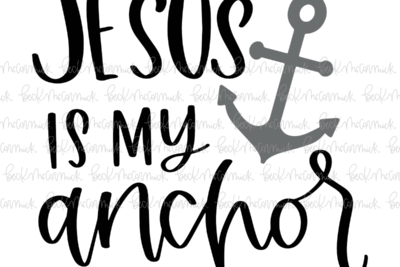 JESUS
IS MY
anchor